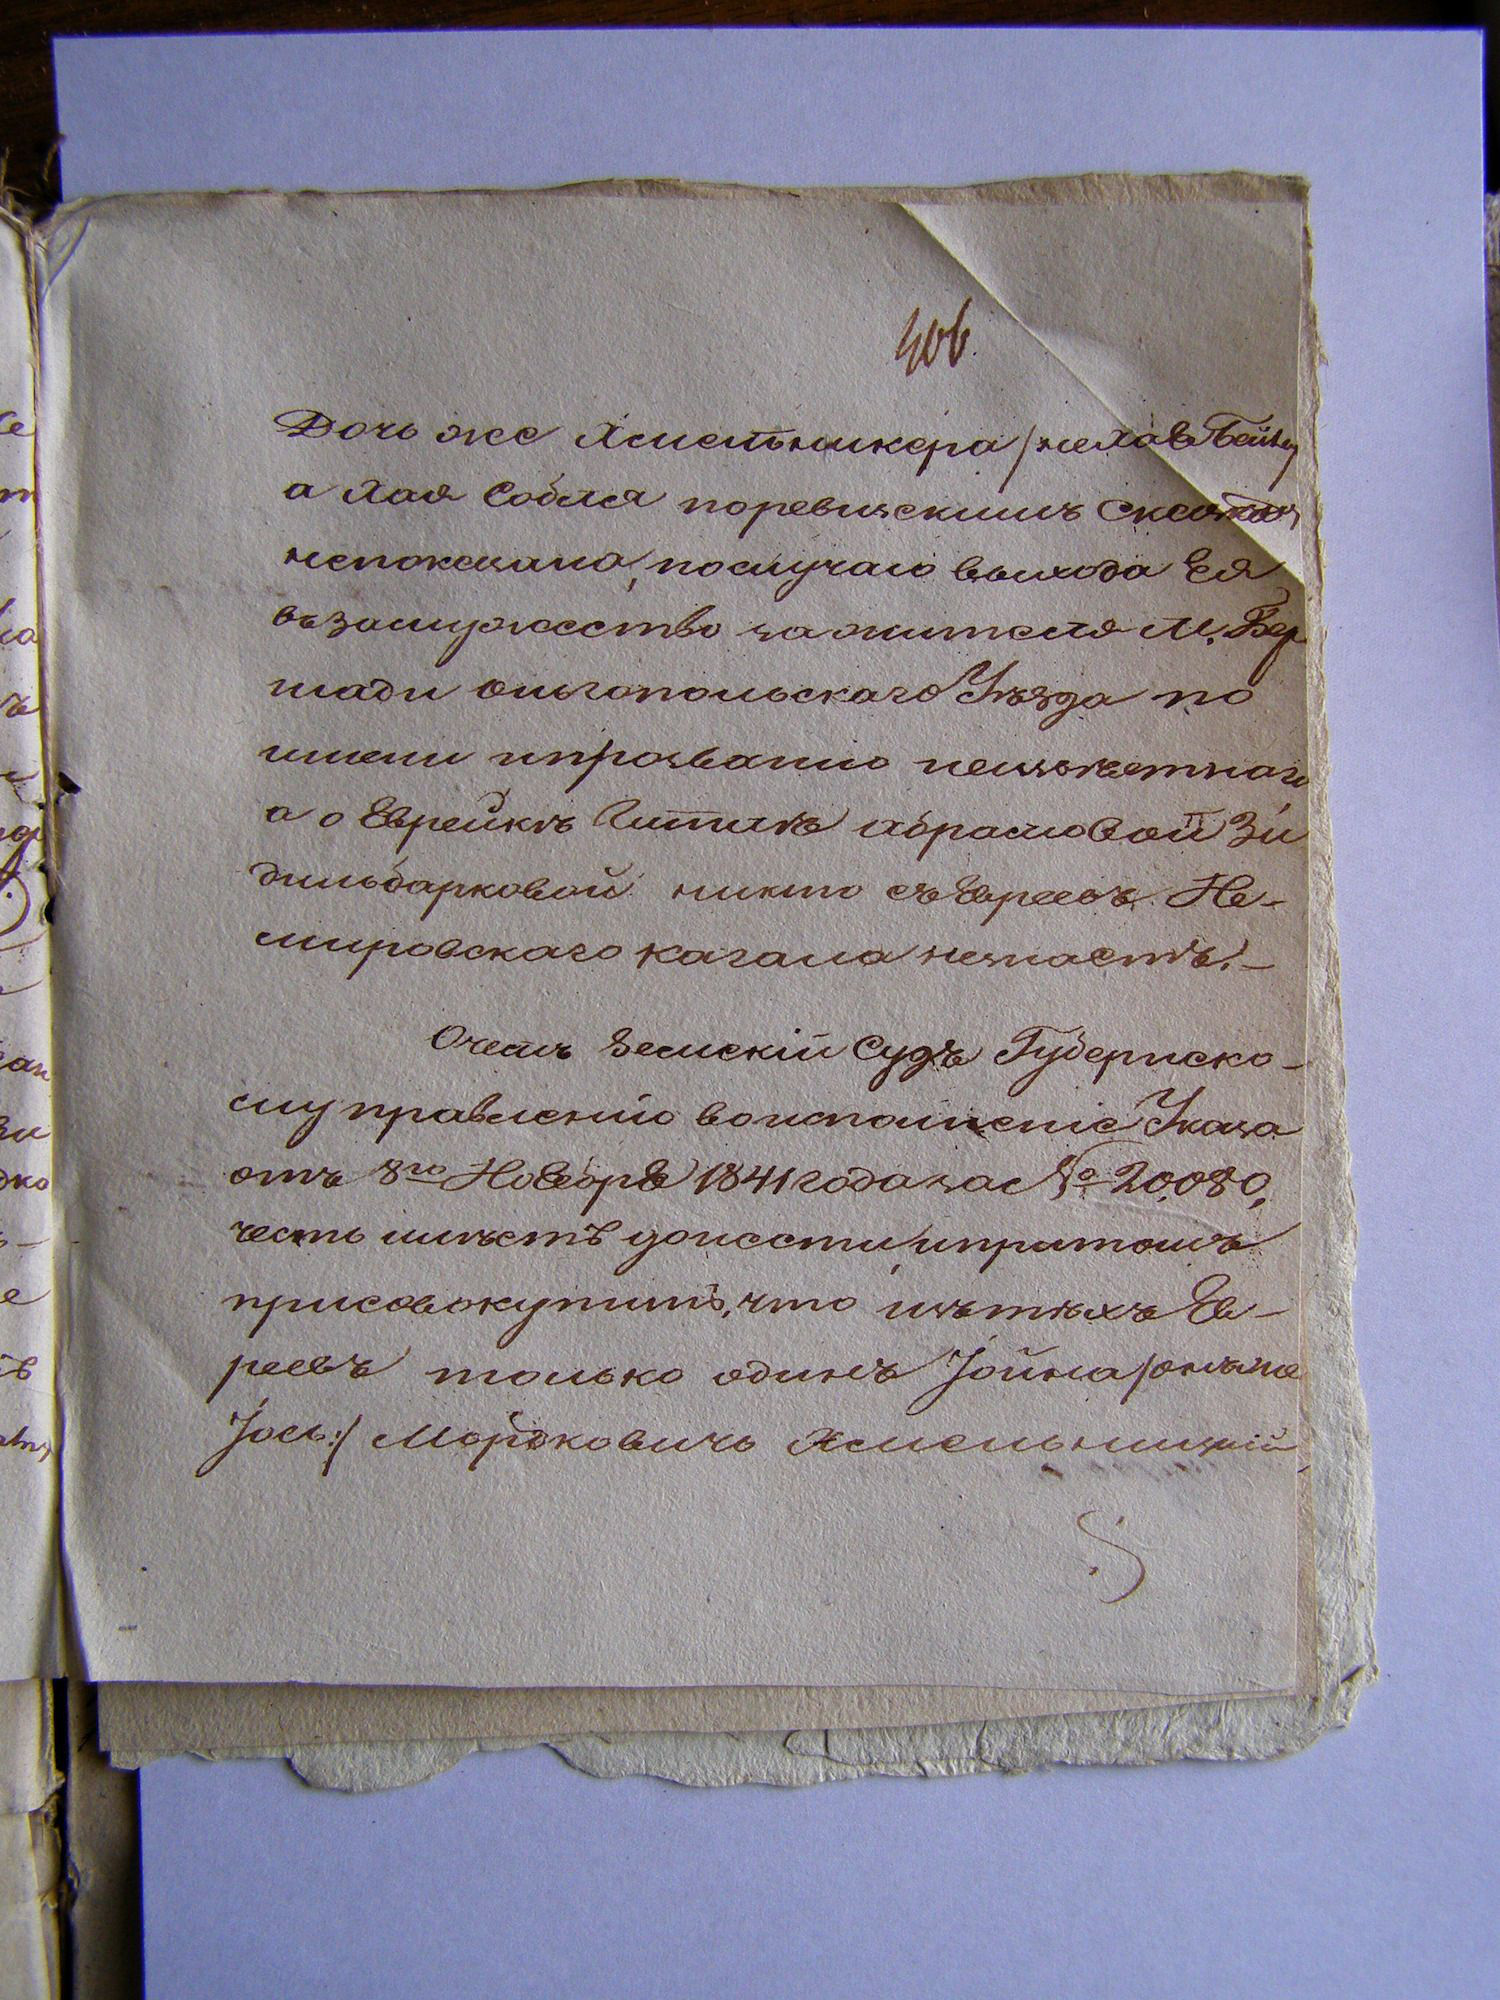 406.
Дочь же Хмельникера /нехая Бейла
а Хая Собля поревизскимъ сказкамъ
непоказана, послучаю выхода Ея
възамужество зажителя М. Бер
шади Ольгопольскаго Уѣзда по
имени ипрозванію неизвѣстнаго
а о Еврейкѣ Гитлѣ Абрамовой Зи
дильбарковой никто съ Евреевъ Не-
мировскаго кагала незнаетъ.-
Очемъ Земскій Судъ Губернско-
му правленію воисполненіе Указа
отъ 8го Ноября 1841 года за № 20,080,
честь имѣетъ донести, ипритомъ
присовокупить, что изътѣхъ Ев-
реевъ только одинъ Іойна /онъже
Іось:/ Мордковичъ Хмельницкій